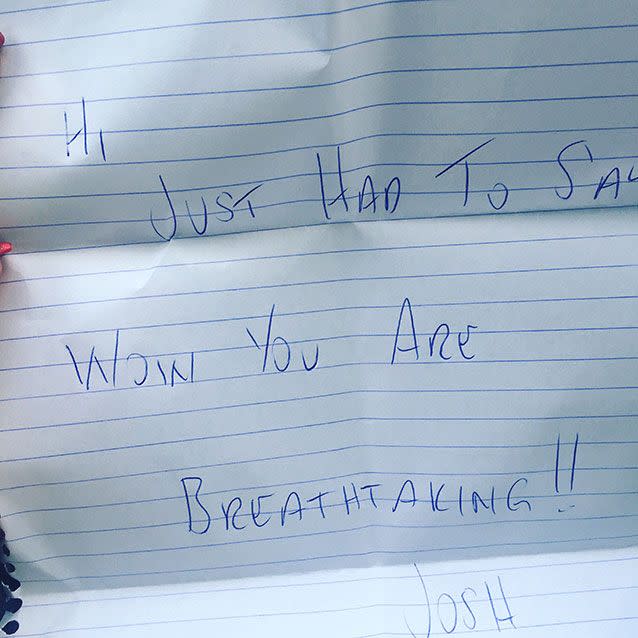 Hi
JUST HAD TO SAY
WOW YOU ARE
BREATHTAKING!!
JOSH